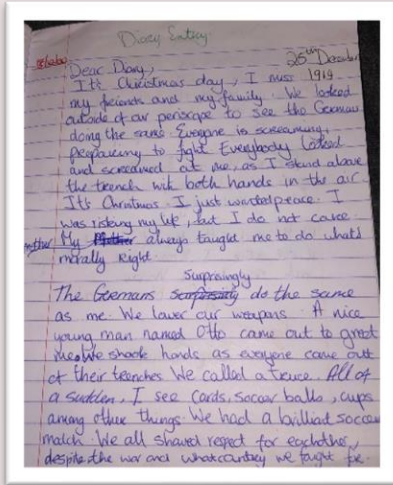 Diary Entry
25th December
1919
Dear Diary,
It's Christmas day, I miss
my friends and my family. We looked
outside of our periscope to see the Germans
doing the same. Everyone is screaming,
preparing to fight. Everybody looked
and screamed at me, as I stand above
the trench with both hands in the air
It's Christmas I just wanted peace. I
was risking my life, but I do not care.
mother My always taught me to do what's
morally right.
Surprisingly
The Germans do the same
as me. We lower our weapons. A nice
young man named Otto came out to greet
me. We shook hands as everyone came out
of their trenches. We called a truce. All of
a sudden, I see cards, soccer balls, cups
among other things. We had a brilliant soccer
match. We all shared respect for eachother,
despite the war and what country we fought for.